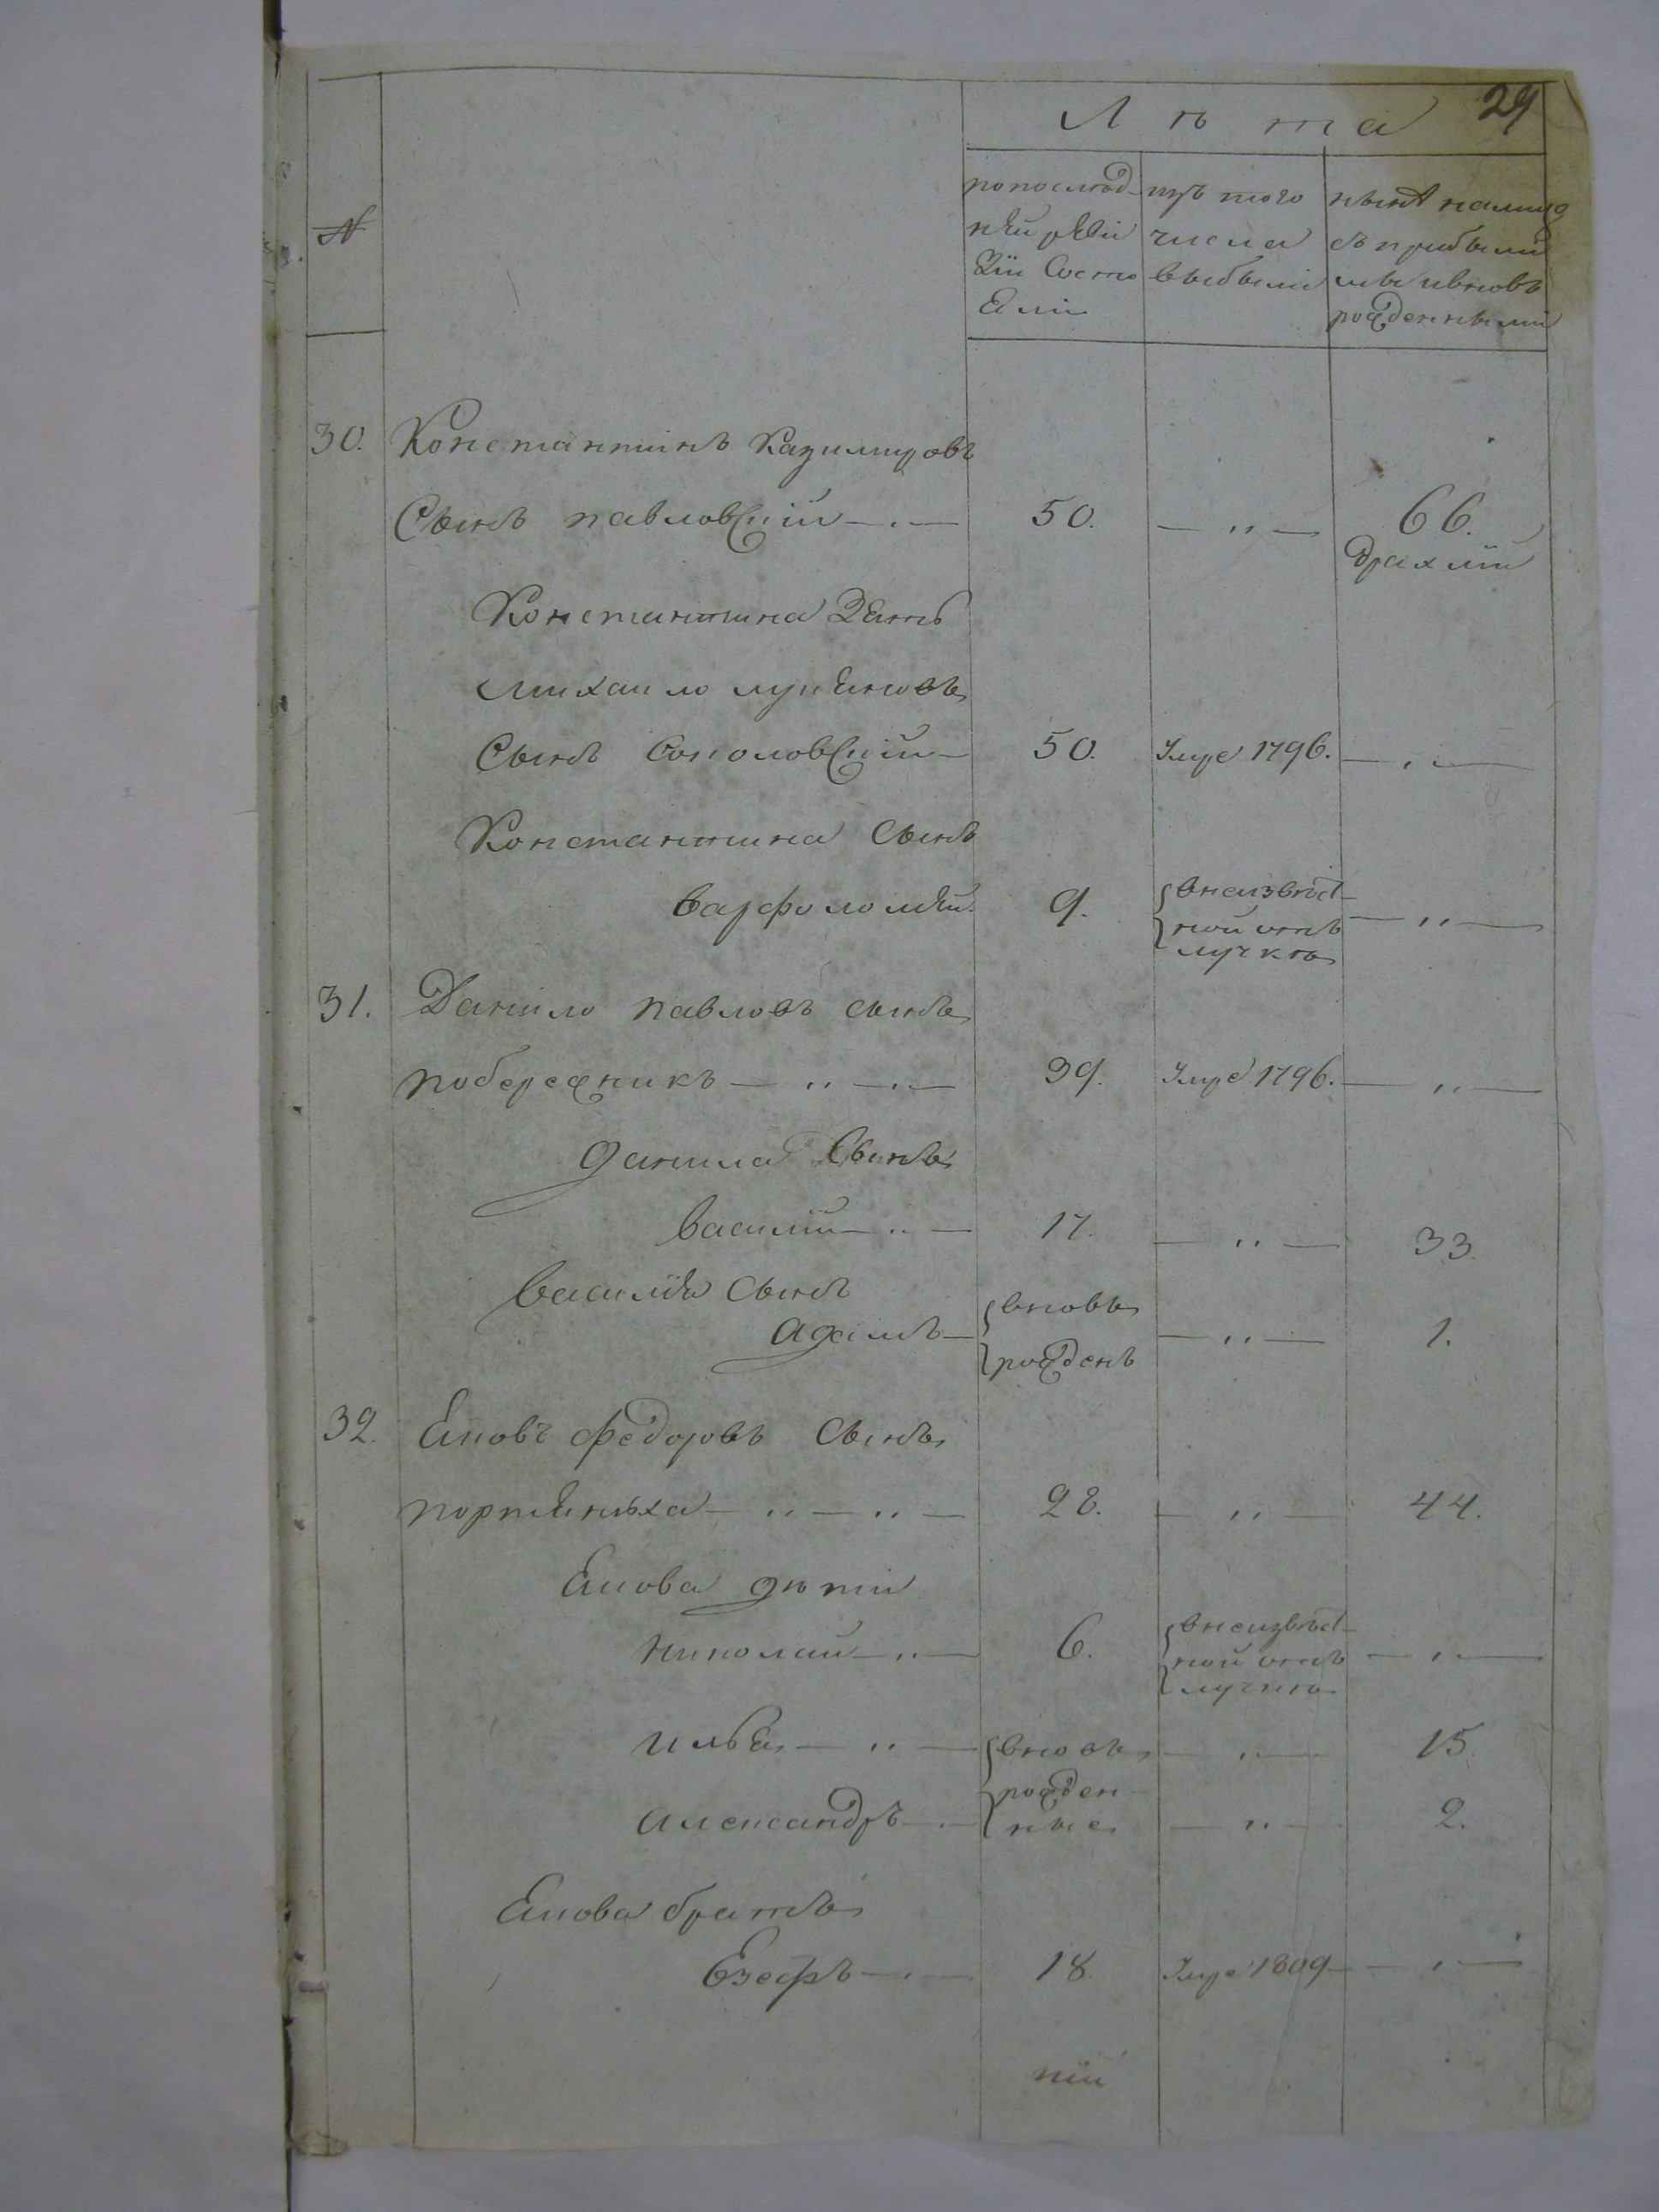 29
Лѣта
№
по послѣд-
нѣй реви
зіи состо
яли
изъ того
числа
выбыли
нынѣ налицо
съ прибылы
ми и вновь
рожденными
30. Константинъ Казимировъ
Сынъ Павловскій — . — 50. — " — 66.
дряхлій
Константина Зять
Михаило Лукяновъ
Сынъ Соколовскій — 50. Умре 1796. — . —
Константина Сынъ
Варфоломѣй. 9. внеизвѣст-
ной отъ
лучкѣ — " —
31. Данило Павловъ Сынъ
Побережникъ — " — . — 39. Умре 1796. — " —
Данила Сынъ
Василій — " — 17. — " — 33.
Василія Сынъ
Адамъ — вновь
рожденъ — " — 1.
32. Яковъ Федоровъ Сынъ
— " — " — 28. — " — 44.
Якова дѣти
Николай — " — 6. внеизвѣст-
ной отъ
лучкѣ — . —
Илья — " — вновь — " — 15.
рожден
Александръ — . — ные — " — 2.
Якова братъ
Езефъ — . — 18. Умре 1809 — . —
тій